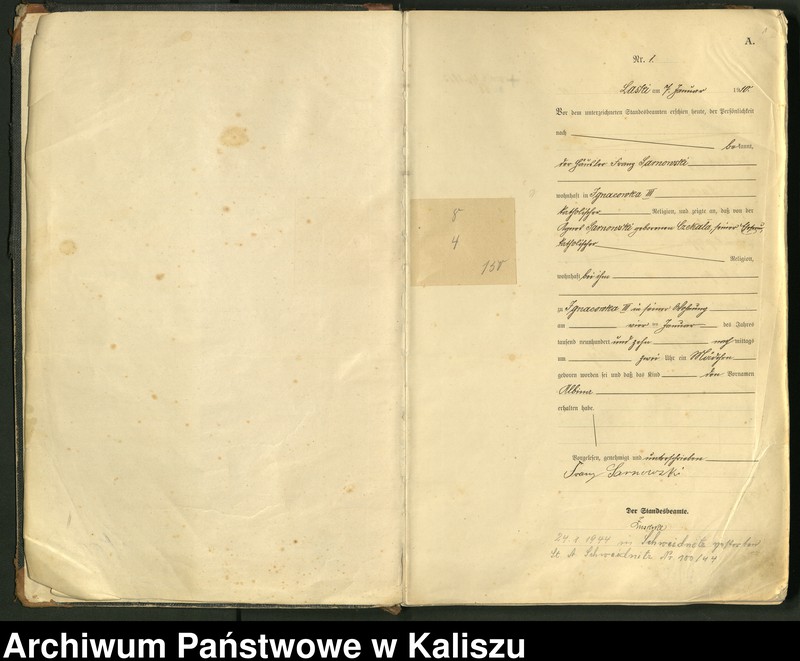 8
4
158
A.
Nr. 1.
Laski am 7. Januar 1910.
Vor dem unterzeichneten Standesbeamten erschien heute, der Persönlichkeit
nach
bekannt,
der Häusler Franz Sarnowski
wohnhaft in Ignacowka III
katholischer Religion, und zeigte an, daß von der
Agnes Sarnowski geborenen Czekala, seiner Ehefrau,
katholischer
Religion,
wohnhaft bei ihm
zu Ignacowka III in seiner Wohnung
am vier ten Januar des Jahres
tausend neunhundert und zehn nachmittags
um zwei Uhr ein Mädchen
geboren worden sei und daß das Kind den Vornamen
Albina
erhalten habe.
Vorgelesen, genehmigt und unterschrieben
Franz Sarnowski
Der Standesbeamte.
1944 in Schweidnitz gestorben
St. A. Schweidnitz Nr. /44
Archiwum Państwowe w Kaliszu